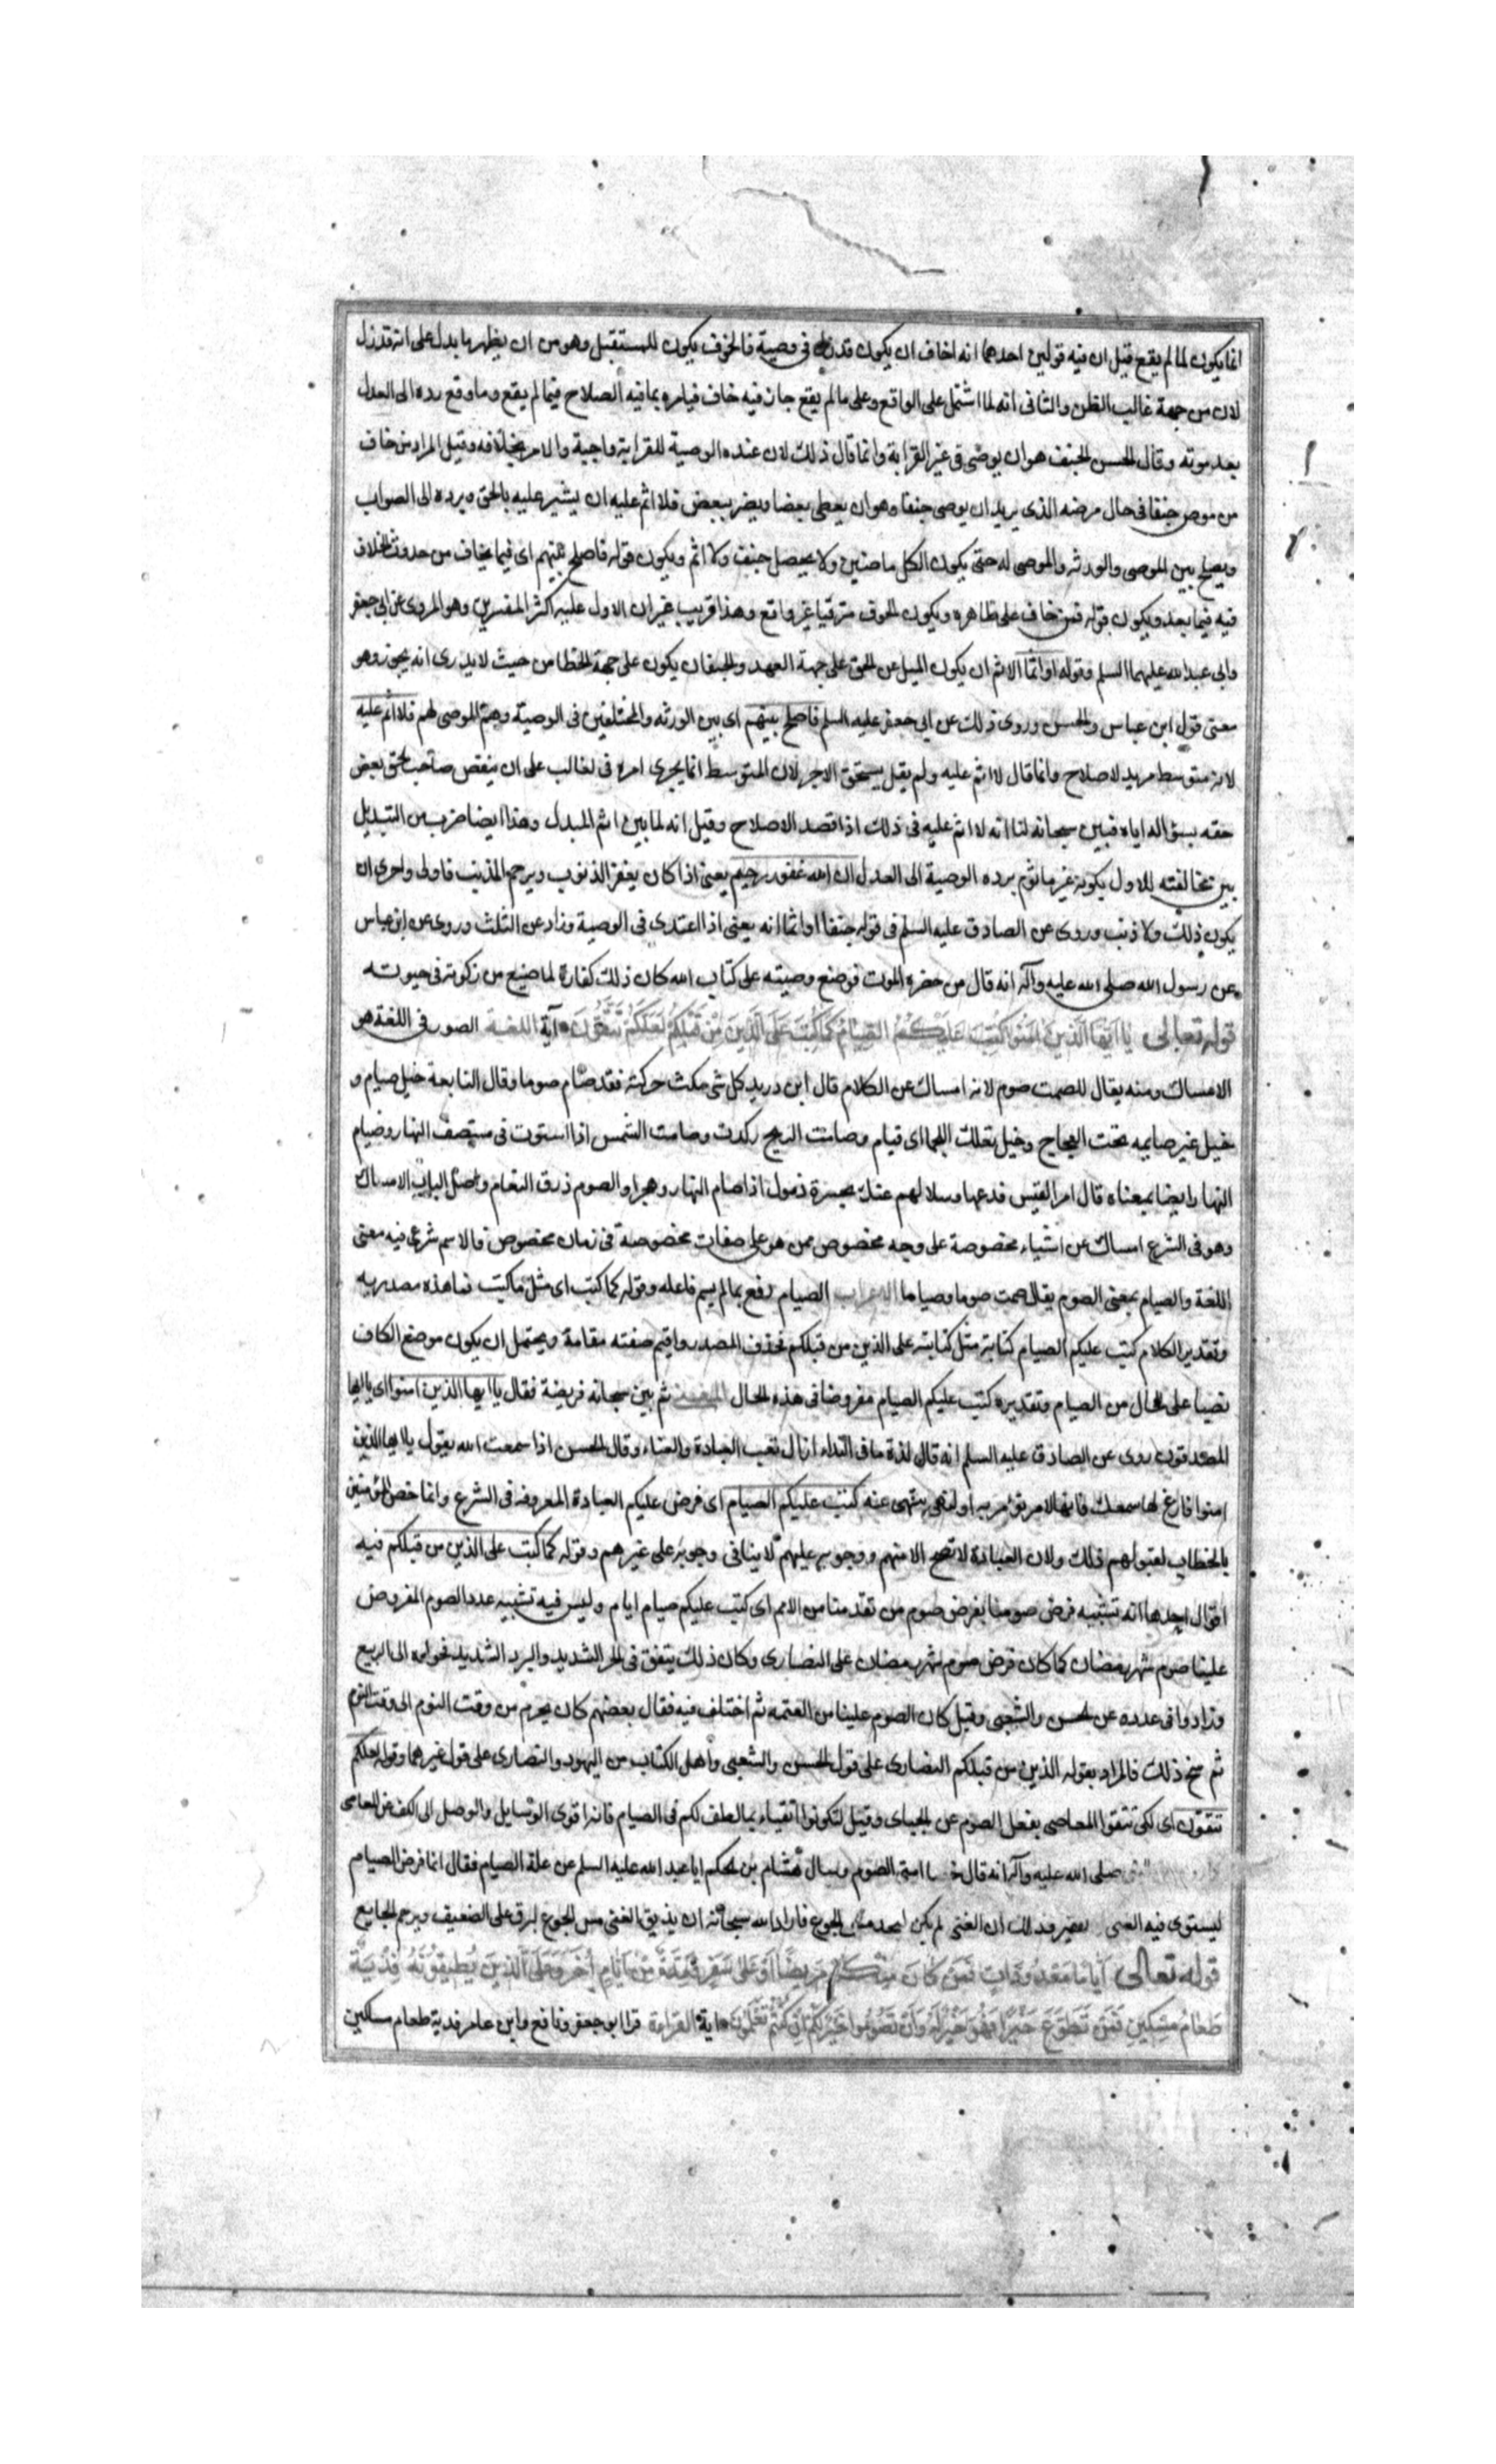 انما يكون لما لم يقع قيل ان فيه قولين احدهما انه اخاف ان يكون قد زل فى وصية فالخوف يكون للمستقبل وهو من ان يظهر ما يدل على انه قد زل
لان من جهة غالب الظن والثانى انه لما اشتمل على الواقع وعلى ما لم يقع جاز فيه خاف فيامره بما فيه الصلاح فيما لم يقع وما وقع رده الى العدل
بعد موته وقال الحسن الجنف هو ان يوصى فى غير القرابة وانما قال ذلك لان عنده الوصية للقرابة واجبة والامر بخلافه وقيل المراد من خاف
من موص جنفا فى حال مرضه الذى يريد ان يوصى جنفا وهو ان يعطى بعضا ويضر ببعض فلا اثم عليه ان يشير عليه بالحق ويرده الى الصواب
ويصلح بين الموصى والورثه والموصى له حتى يكون الكل راضين ولا يحصل جنف ولا اثم ويكون قوله فاصلح بينهم اى فيما يخاف من حدوث الخلاف
فيه فيما بعد ويكون قوله فمن خاف على ظاهره ويكون الخوف مترقبا غير واقع وهذا قريب غير ان الاول عليه اكثر المفسرين وهو المروى عن ابى جعفر
وابى عبد الله عليهما السلم وقوله او اثما الاثم ان يكون الميل عن الحق على جهة العمد والجنف ان يكون على جهة الخطا من حيث لا يدرى انه يجوز وهو
معنى قول ابن عباس والحسن وروى ذلك عن ابى جعفر عليه السلم فاصلح بينهم اى بين الورثه والمختلفين فى الوصية وهم الموصى لهم فلا اثم عليه
لانه متوسط مريد لاصلاح وانما قال لا اثم عليه ولم يقل يستحق الاجر لان المتوسط انما يجرى امره فى الغالب على ان ينقص صاحب الحق بعض
حقه بسؤاله اياه فبين سبحانه لنا انه لا اثم عليه فى ذلك اذا قصد الاصلاح وقيل انه لما بين اثم المبدل وهذا ايضا ضرب من التبديل
بين مخالفته للاول بكونه غير ماثوم برده الوصية الى العدل ان الله غفور رحيم يعنى اذا كان يغفر الذنوب ويرحم المذنب فاولى واحرى ان
يكون ذلك ولا ذنب وروى عن الصادق عليه السلم فى قوله جنفا او اثما انه يعنى اذا اعتدى فى الوصية وزاد عن الثلث وروى عن ابن عباس
عن رسول الله صلى الله عليه وآله انه قال من حضره الموت فوضع وصيته على كتاب الله كان ذلك كفارة لما ضيع من زكوته فى حيوته
قوله تعالى يا ايها الذين امنوا كتب عليكم الصيام كما كتب على الذين من قبلكم لعلكم تتقون آية اللغة الصوم فى اللغة هو
الامساك ومنه يقال للصمت صوم لانه امساك عن الكلام قال ابن دريد كل شى مكث حركته فقد صام صوما وقال النابغة خيل صيام و
خيل غير صايمه تحت العجاج وخيل تعلك اللجما اى قيام وصامت الريح ركدت وصامت الشمس اذا استوت فى منتصف النهار وصيام
النهار ايضا بمعناه قال امرا القيس فدعها وسلا لهم عنك بجسرة ذمول اذا صام النهار وهجرا والصوم ذرق النعام واصل الباب الامساك
وهو فى الشرع امساك عن اشياء مخصوصة على وجه مخصوص ممن هو على صفات مخصوصة فى زمان مخصوص فالاسم شرعى فيه معنى
اللغة والصيام بمعنى الصوم يقال صمت صوما وصياما الاعراب الصيام رفع بما لم يسم فاعله وقوله كما كتب اى مثل ما كتب فما هذه مصدريه
وتقدير الكلام كتب عليكم الصيام كتابة مثل كتابته على الذين من قبلكم فحذف المصدر واقيم صفته مقامة ويحتمل ان يكون موضع الكاف
نصبا على الحال من الصيام وتقديره كتب عليكم الصيام مفروضا فى هذه الحال المعنى ثم بين سبحانه فريضة فقال يا ايها الذين امنوا اى يا ايها
المصدقون روى عن الصادق عليه السلم انه قال لذة ما فى النداء ازال تعب العبادة والعناء وقال الحسن اذا سمعت الله يقول يا ايها الذين
امنوا فارغ لها سمعك فانها لامر تؤمر به او لنهى تنتهى عنه كتب عليكم الصيام اى فرض عليكم العبادة المعروفه فى الشرع وانما خص المؤمنين
بالخطاب لقبولهم ذلك ولان العبادة لا تصح الا منهم ووجوبه عليهم لا ينافى وجوبه على غيرهم وقوله كما كتب على الذين من قبلكم فيه
اقوال احدها انه تشبيه فرض صومنا بفرض صوم من تقدمنا من الامم اى كتب عليكم صيام ايام وليس فيه تشبيه عدد الصوم المفروض
علينا صوم شهر رمضان كما كان فرض صوم شهر رمضان على النصارى وكان ذلك يتفق فى الحر الشديد والبرد الشديد فحولوه الى الربيع
وزادوا فى عدده عن الحسن والشعبى وقيل كان الصوم علينا من العتمه ثم اختلف فيه فقال بعضهم كان يحرم من وقت النوم الى وقت النوم
ثم نسخ ذلك فالمراد بقوله الذين من قبلكم النصارى على قول الحسن والشعبى واهل الكتاب من اليهود والنصارى على قول غيرهما وقوله لعلكم
تتقون اى لكى تتقوا المعاصى بفعل الصوم عن الجبائى وقيل لتكونوا اتقياء بما لطف لكم فى الصيام فانه اقوى الوسايل والوصل الى الكف عن المعاصى
صلى الله عليه وآله انه قال امتى الصوم وسال هشام بن الحكم ابا عبد الله عليه السلم عن علة الصيام فقال انما فرض الصيام
ليستوى فيه الغنى والفقير وذلك ان الغنى لم يكن ليجد مس الجوع فاراد الله سبحانه ان يذيق الغنى مس الجوع ليرق على الضعيف ويرحم الجايع
قوله تعالى اياما معدودات فمن كان منكم مريضا او على سفر فعدة من ايام اخر وعلى الذين يطيقونه فدية
طعام مسكين فمن تطوع خيرا فهو خير له وان تصوموا خير لكم ان كنتم تعلمون اية القراءة قرا ابو جعفر ونافع وابن عامر فدية طعام مساكين